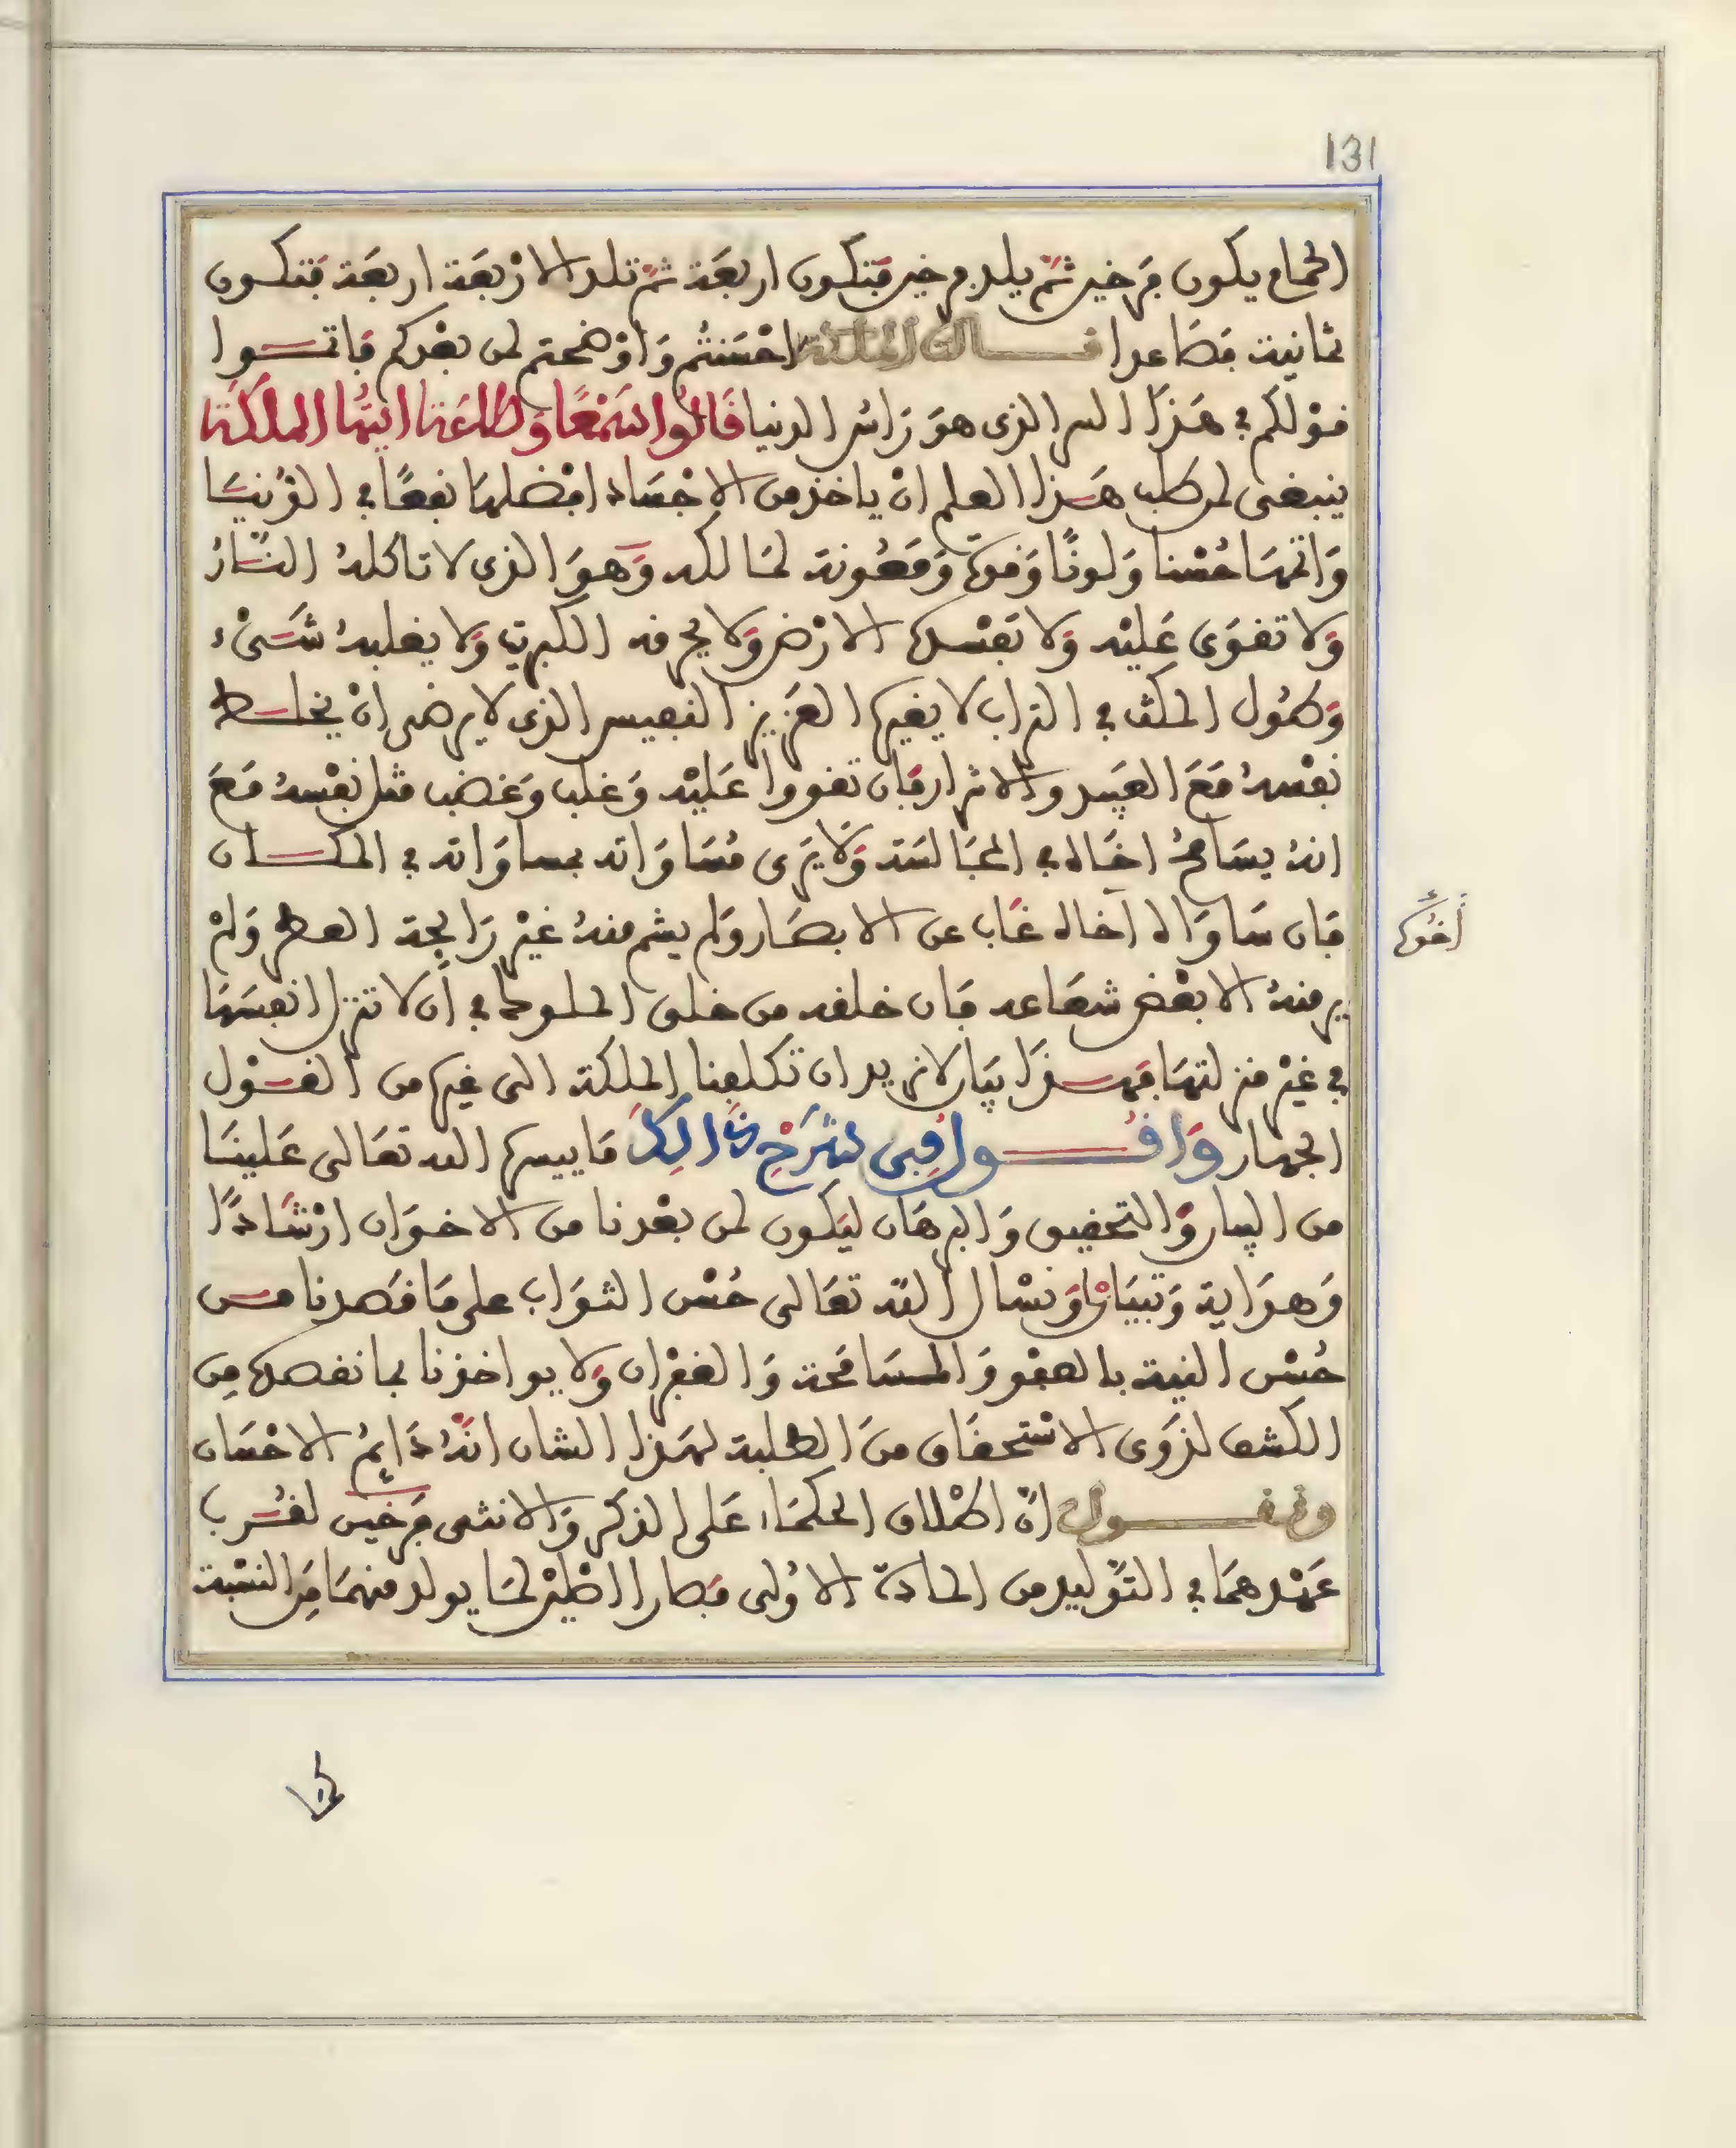 131
الحمام يكون فرخين ثم يلد فرخين فتكون اربعة ثم تلد الاربعة اربعة فتكون
ثمانية فصاعدا قالت الملكة احسنتم واوضحتم لمن بعدكم فاتموا
قولكم في هذا السر الذى هو راس الدنيا قالوا سمعا وطاعة ايتها الملكة
ينبغى لمن طلب هذا العلم ان ياخذ من الاجساد افضلها نفعا في الدنيا
واتمها حسنا ولونا وقوة ومعونة لمالكه وهو الذى لا تاكله النار
ولا تقوى عليه ولا تفسده الارض ولا يحرقه الكبريت ولا يغلبه شىء
وطول المكث في التراب لا يغيره العزيز النفيس الذى لا يرضى ان يخلط
نفسه مع العبيد والاشرار فان تقووا عليه وغلب وغضب قتل نفسه مع
انه يسامح اخاه في المجالسة ولا يرى مساواته بمساواته في المكان
فان ساواه اخاه غاب عن الابصار ولم يشم منه غير رايحة العطر ولم
ير منه الا بعض شعاعه فان خلقه من خلق الملوك في ان لا تنزل انفسها
في غير منزلتها فهذا بيان لا نريد ان تكلفنا الملكة الى غيره من القول
الجهار واقول في شرح ذالك ما ييسره الله تعالى علينا
من البيان والتحقيق والبرهان ليكون لمن بعدنا من الاخوان ارشادا
وهداية وتبيانا ونسال الله تعالى حسن الثواب على ما قصدنا من
حسن النية بالعفو والمسامحة والغفران ولا يواخذنا بما نقصده من
الكشف لذوى الاستحقاق من الطلبة لهذا الشان انه دايم الاحسان
ونقول ان اطلاق الحكماء على الذكر والانثى فرخين لقرب
عهدهما في التوليد من المادة الاولى فصارا اصلين لما يولد منهما من النسبة
اخوه